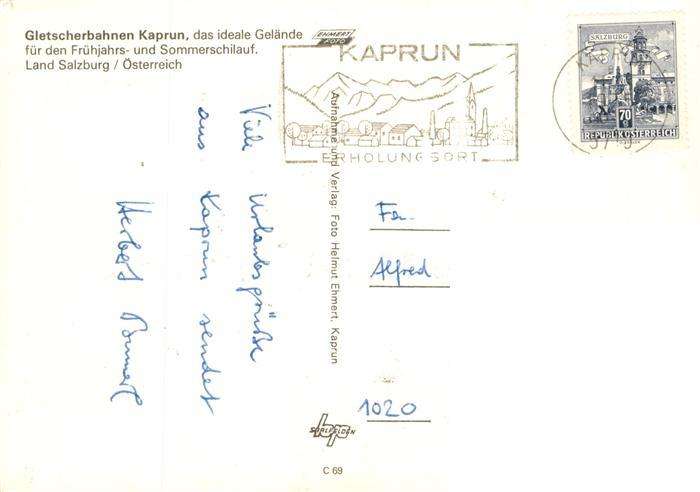 Gletscherbahnen Kaprun, das ideale Gelände
für den Frühjahrs- und Sommerschilauf.
Land Salzburg / Österreich
EHMERT
FOTO
KAPRUN
ERHOLUNGSORT
SALZBURG
70
REPUBLIK ÖSTERREICH
Viele Urlaubsgrüße
aus Kaprun sendet
Herbert
Aufnahme und Verlag: Foto Helmut Ehmert, Kaprun
Fa.
Alfred
1020
SAALFELDEN
C 69